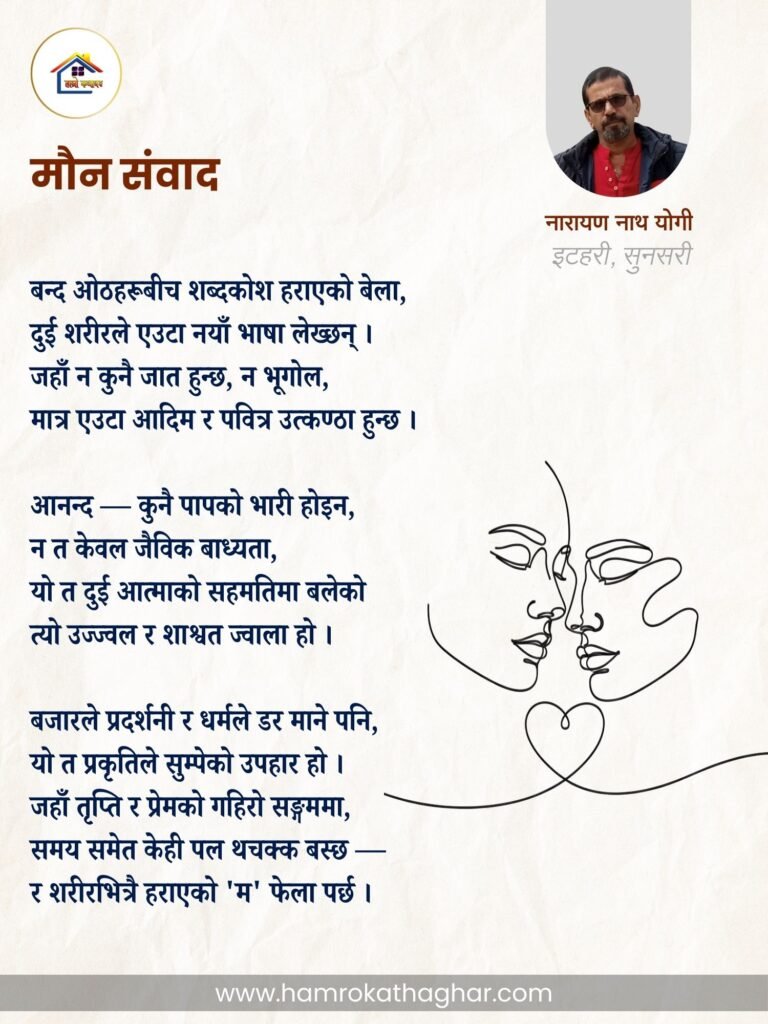 हाम्रो कथाघर
मौन संवाद
नारायण नाथ योगी
इटहरी, सुनसरी
बन्द ओठहरूबीच शब्दकोश हराएको बेला,
दुई शरीरले एउटा नयाँ भाषा लेख्छन् ।
जहाँ न कुनै जात हुन्छ, न भूगोल,
मात्र एउटा आदिम र पवित्र उत्कण्ठा हुन्छ ।
आनन्द — कुनै पापको भारी होइन,
न त केवल जैविक बाध्यता,
यो त दुई आत्माको सहमतिमा बलेको
त्यो उज्ज्वल र शाश्वत ज्वाला हो ।
बजारले प्रदर्शनी र धर्मले डर माने पनि,
यो त प्रकृतिले सुम्पेको उपहार हो ।
जहाँ तृप्ति र प्रेमको गहिरो सङ्गममा,
समय समेत केही पल थचक्क बस्छ —
र शरीरभित्रै हराएको 'म' फेला पर्छ ।
www.hamrokathaghar.com